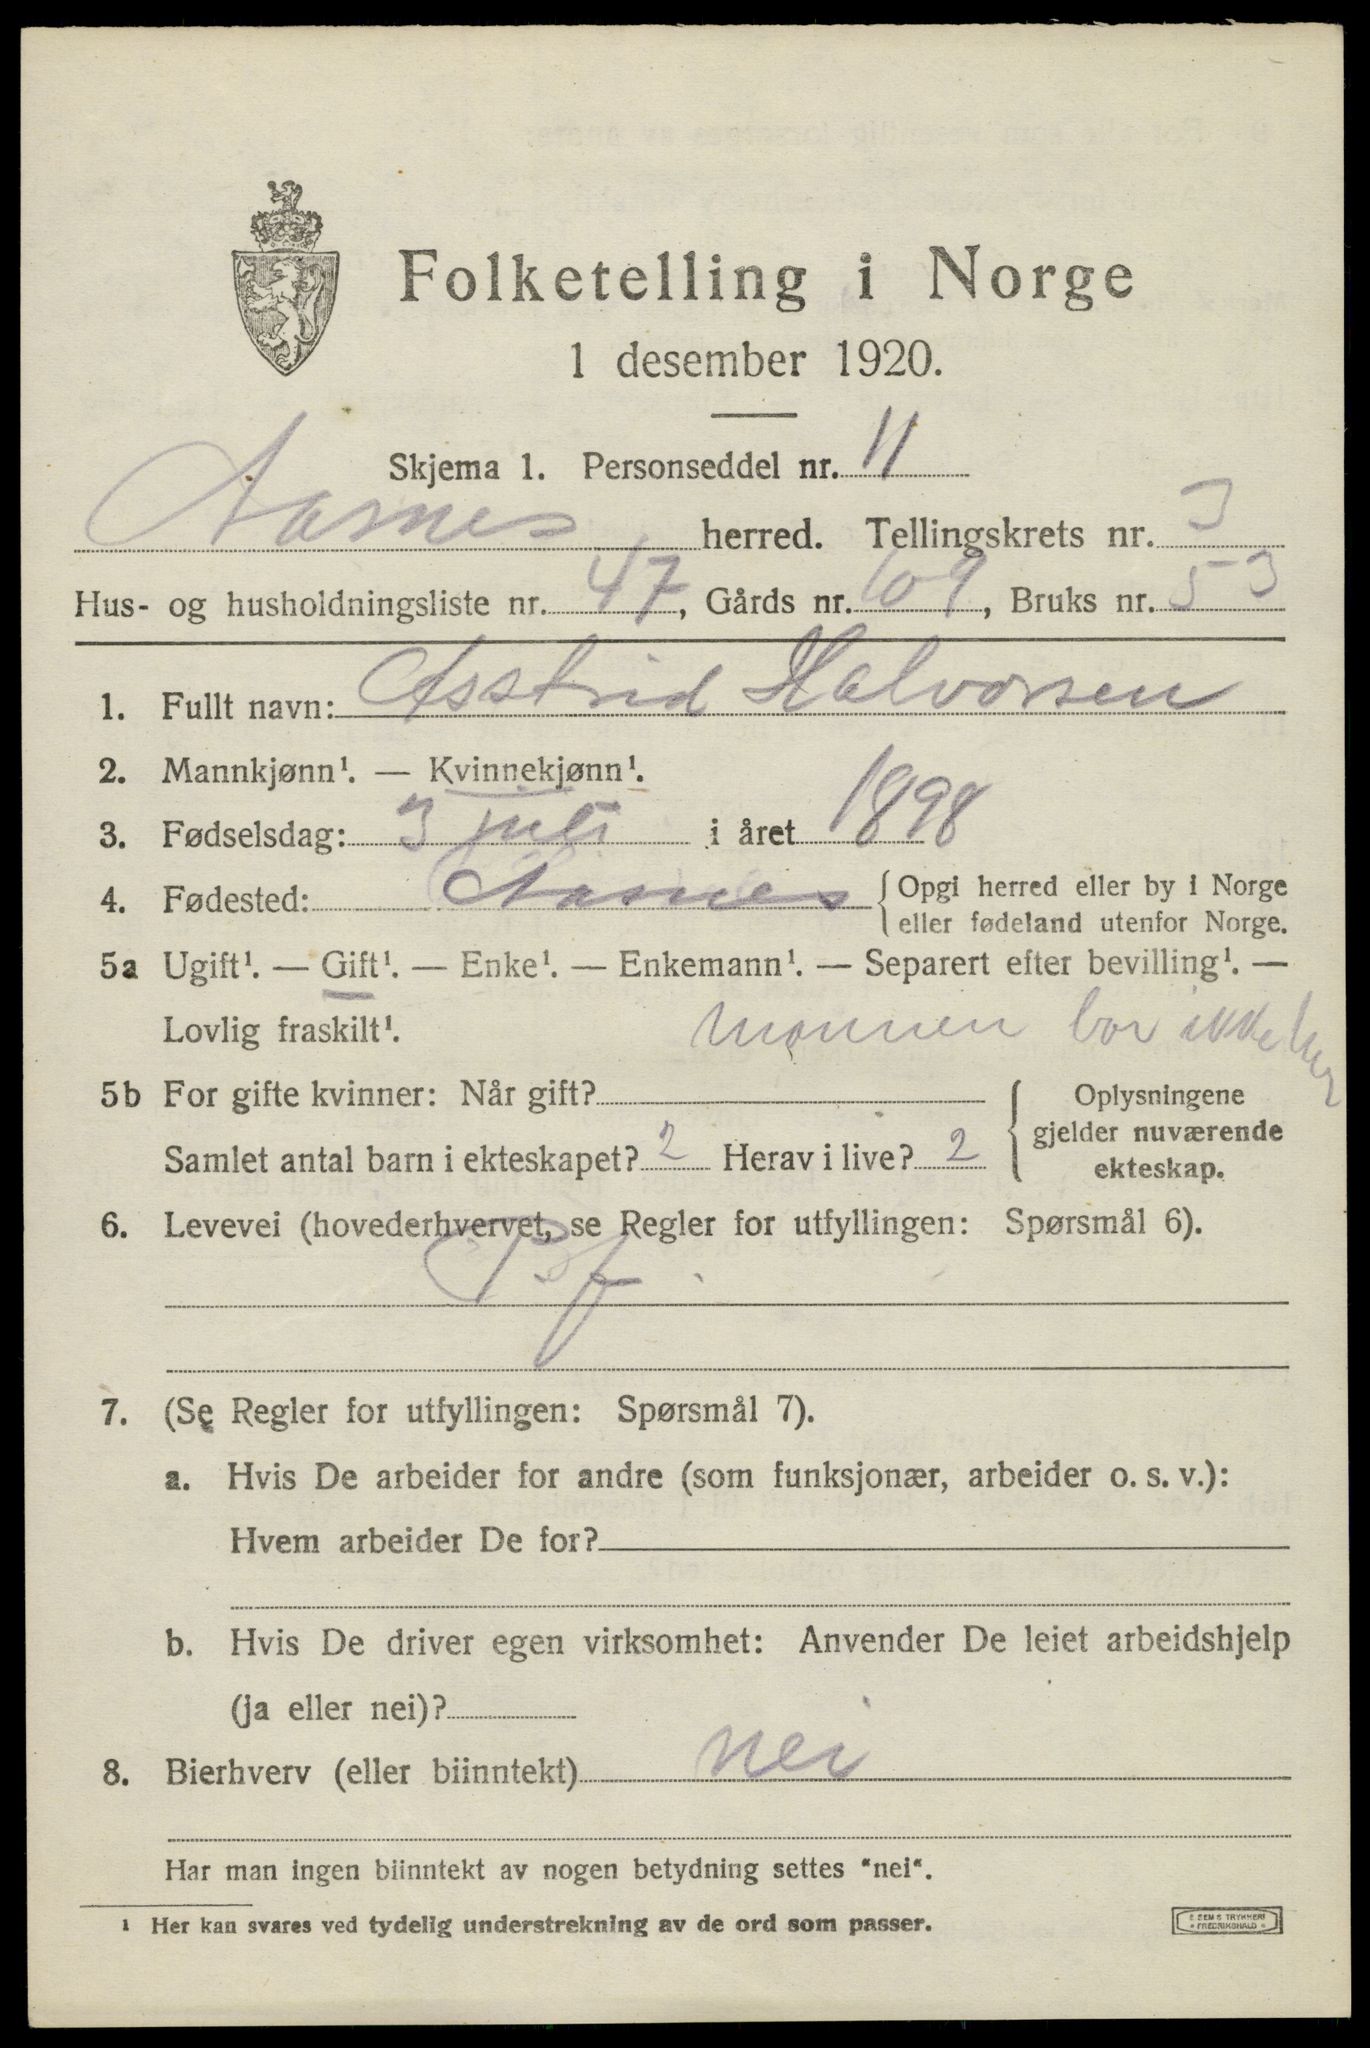 Folketelling i Norge
1 desember 1920.
Skjema 1. Personseddel nr. 11
Aasnes herred. Tellingskrets nr. 3
Hus- og husholdningsliste nr. 47, Gårds nr. 69, Bruks nr. 53
1. Fullt navn: Asstrid Halvorsen
2. Mannkjønn¹. — Kvinnekjønn¹.
3. Fødselsdag: 3 juli i året 1898
4. Fødested: Aasnes { Opgi herred eller by i Norge
eller fødeland utenfor Norge.
5a Ugift¹. — Gift¹. — Enke¹. — Enkemann¹. — Separert efter bevilling¹. —
Lovlig fraskilt¹. mannen bor ikke her
5b For gifte kvinner: Når gift? { Oplysningene
gjelder nuværende
Samlet antal barn i ekteskapet? 2 Herav i live? 2
ekteskap.
6. Levevei (hovederhvervet, se Regler for utfyllingen: Spørsmål 6).
7. (Se Regler for utfyllingen: Spørsmål 7).
a. Hvis De arbeider for andre (som funksjonær, arbeider o. s. v.):
Hvem arbeider De for?
b. Hvis De driver egen virksomhet: Anvender De leiet arbeidshjelp
(ja eller nei)?
8. Bierhverv (eller biinntekt) nei
Har man ingen biinntekt av nogen betydning settes "nei".
¹ Her kan svares ved tydelig understrekning av de ord som passer.
E SEMS TRYKKERI
* FREDRIKSHALD *